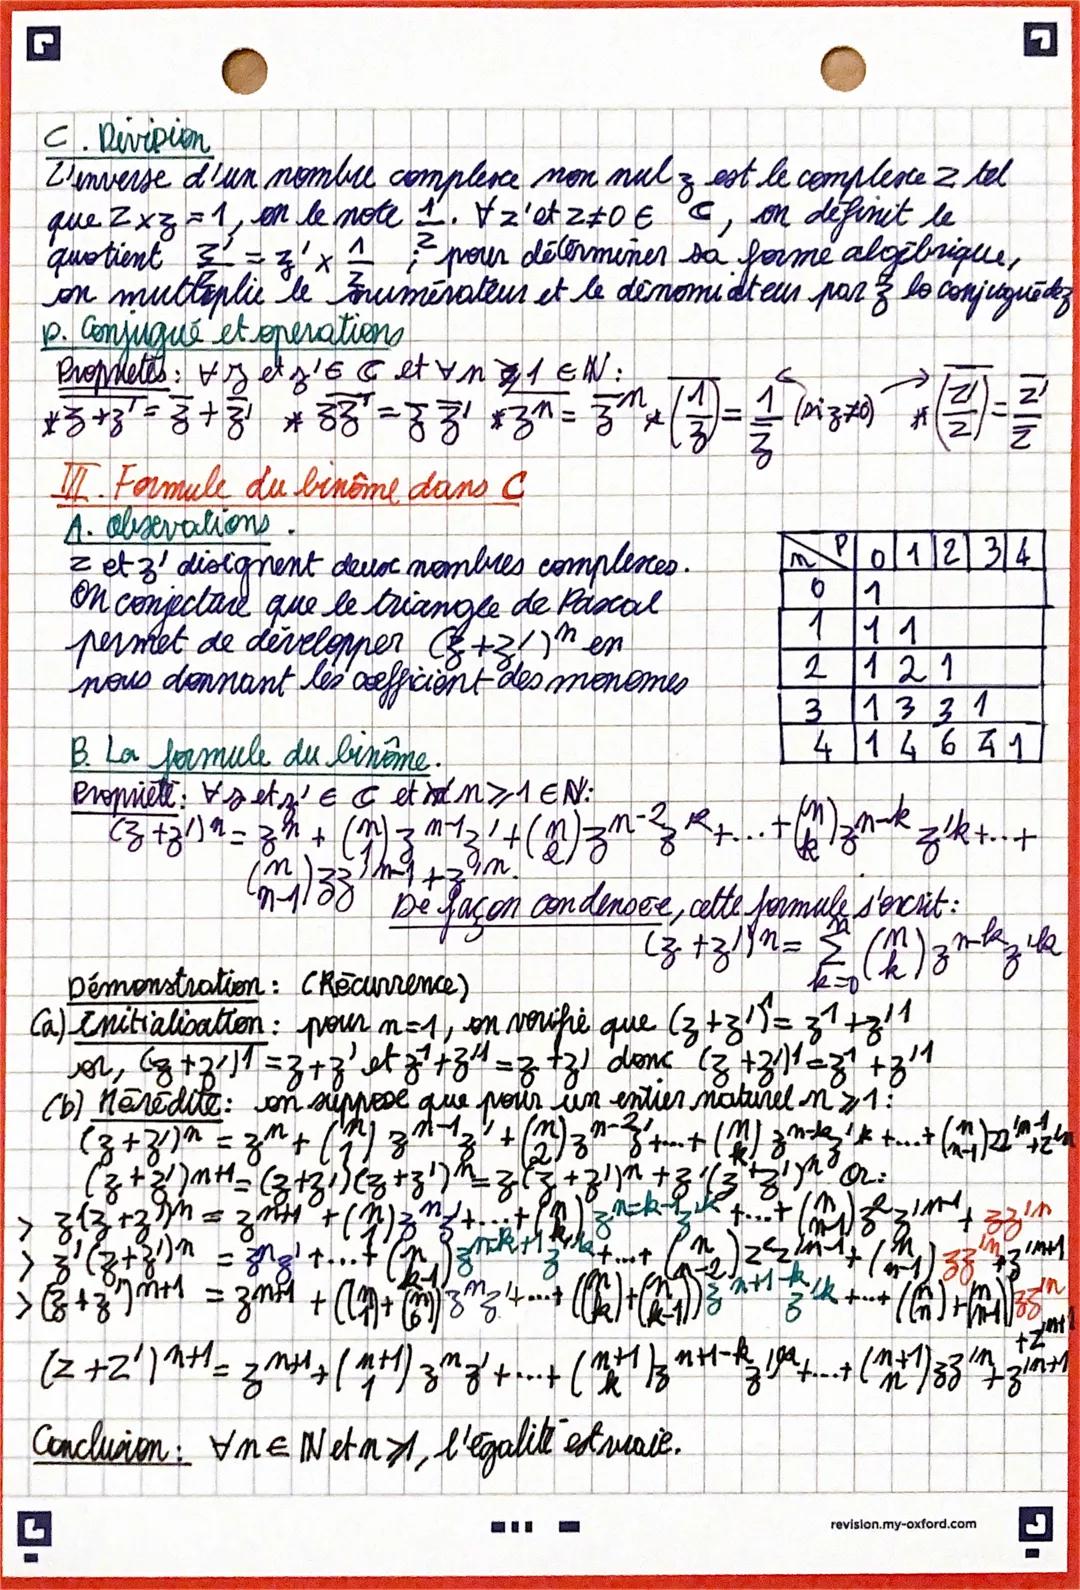 C. Division
L'inverse d'un nombre complexe non nul z est le complexe Z tel
que Z x z = 1, on le note 1/z. ∀ z' et z≠0 ∈ ℂ, on définit le
quotient z'/z = z' x 1/z ; pour déterminer sa forme algébrique,
on multiplie le numérateur et le dénomidteur par z̄ le conjugué de z
D. Conjugué et opérations
Propriétés : ∀ z et z' ∈ ℂ et ∀ n ⩾ 1 ∈ ℕ :
* \overline{z+z'} = z̄ + z̄' * \overline{zz'} = z̄ z̄' * \overline{z^n} = z̄^n * \overline{(1/z)} = 1/z̄ (si z≠0) * \overline{(z'/z)} = z̄'/z̄
III. Formule du binôme dans C
A. Observations.
z et z' désignent deux nombres complexes.
On conjecture que le triangle de Pascal
permet de développer (z+z')^n en
nous donnant les coefficient des monomes
n p 0 1 2 3 4
0 1
1 1 1
2 1 2 1
3 1 3 3 1
4 1 4 6 4 1
B. La formule du binôme.
Propriété : ∀ z et z' ∈ ℂ et n ⩾ 1 ∈ ℕ :
(z+z')^n = z^n + (n 1) z^{n-1} z' + (n 2) z^{n-2} z'^2 + ... + (n k) z^{n-k} z'^k + ... +
(n n-1) z z'^{n-1} + z'^n.
De façon condensée, cette formule s'écrit :
(z+z')^n = Σ_{k=0}^{n} (n k) z^{n-k} z'^k
Démonstration : (Récurrence)
(a) Initialisation : pour n=1, on vérifie que (z+z')^1 = z^1 + z'^1
or, (z+z')^1 = z+z' et z^1+z'^1 = z+z' donc (z+z')^1 = z^1 + z'^1
(b) Hérédité : on suppose que pour un entier naturel n ⩾ 1 :
(z+z')^n = z^n + (n 1) z^{n-1} z' + (n 2) z^{n-2} z' + ... + (n k) z^{n-k} z'^k + ... + (n n-1) z z'^{n-1} + z'^n
(z+z')^{n+1} = (z+z')(z+z')^n = z(z+z')^n + z'(z+z')^n Or :
> z(z+z')^n = z^{n+1} + (n 1) z^n z' + ... + (n k) z^{n-k-1} z'^k + ... + (n n-1) z^2 z'^{n-1} + zz'^n
> z'(z+z')^n = z^n z' + ... + (n k-1) z^{n-k+1} z'^k + ... + (n n-2) z^2 z'^{n-1} + (n n-1) zz'^n + z'^{n+1}
> (z+z')^{n+1} = z^{n+1} + ((n 1)+(n 0)) z^n z' + ... + ((n k)+(n k-1)) z^{n+1-k} z'^k + ... + ((n n)+(n n-1)) zz'^n
+ z'^{n+1}
(z+z')^{n+1} = z^{n+1} + (n+1 1) z^n z' + ... + (n+1 k) z^{n+1-k} z'^k + ... + (n+1 n) zz'^n + z'^{n+1}
Conclusion : ∀ n ∈ ℕ et n ⩾ 1, l'égalité est vraie.
revision.my-oxford.com